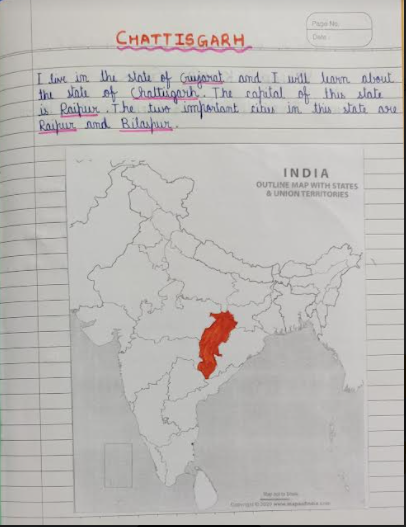 Page No.
Date
CHATTISGARH
I live in the state of Gujarat and I will learn about
the state of Chattisgarh. The capital of this state
is Raipur. The two important cities in this state are
Raipur and Bilaspur.
INDIA
OUTLINE MAP WITH STATES
& UNION TERRITORIES
Copyright © www.mapsofindia.com